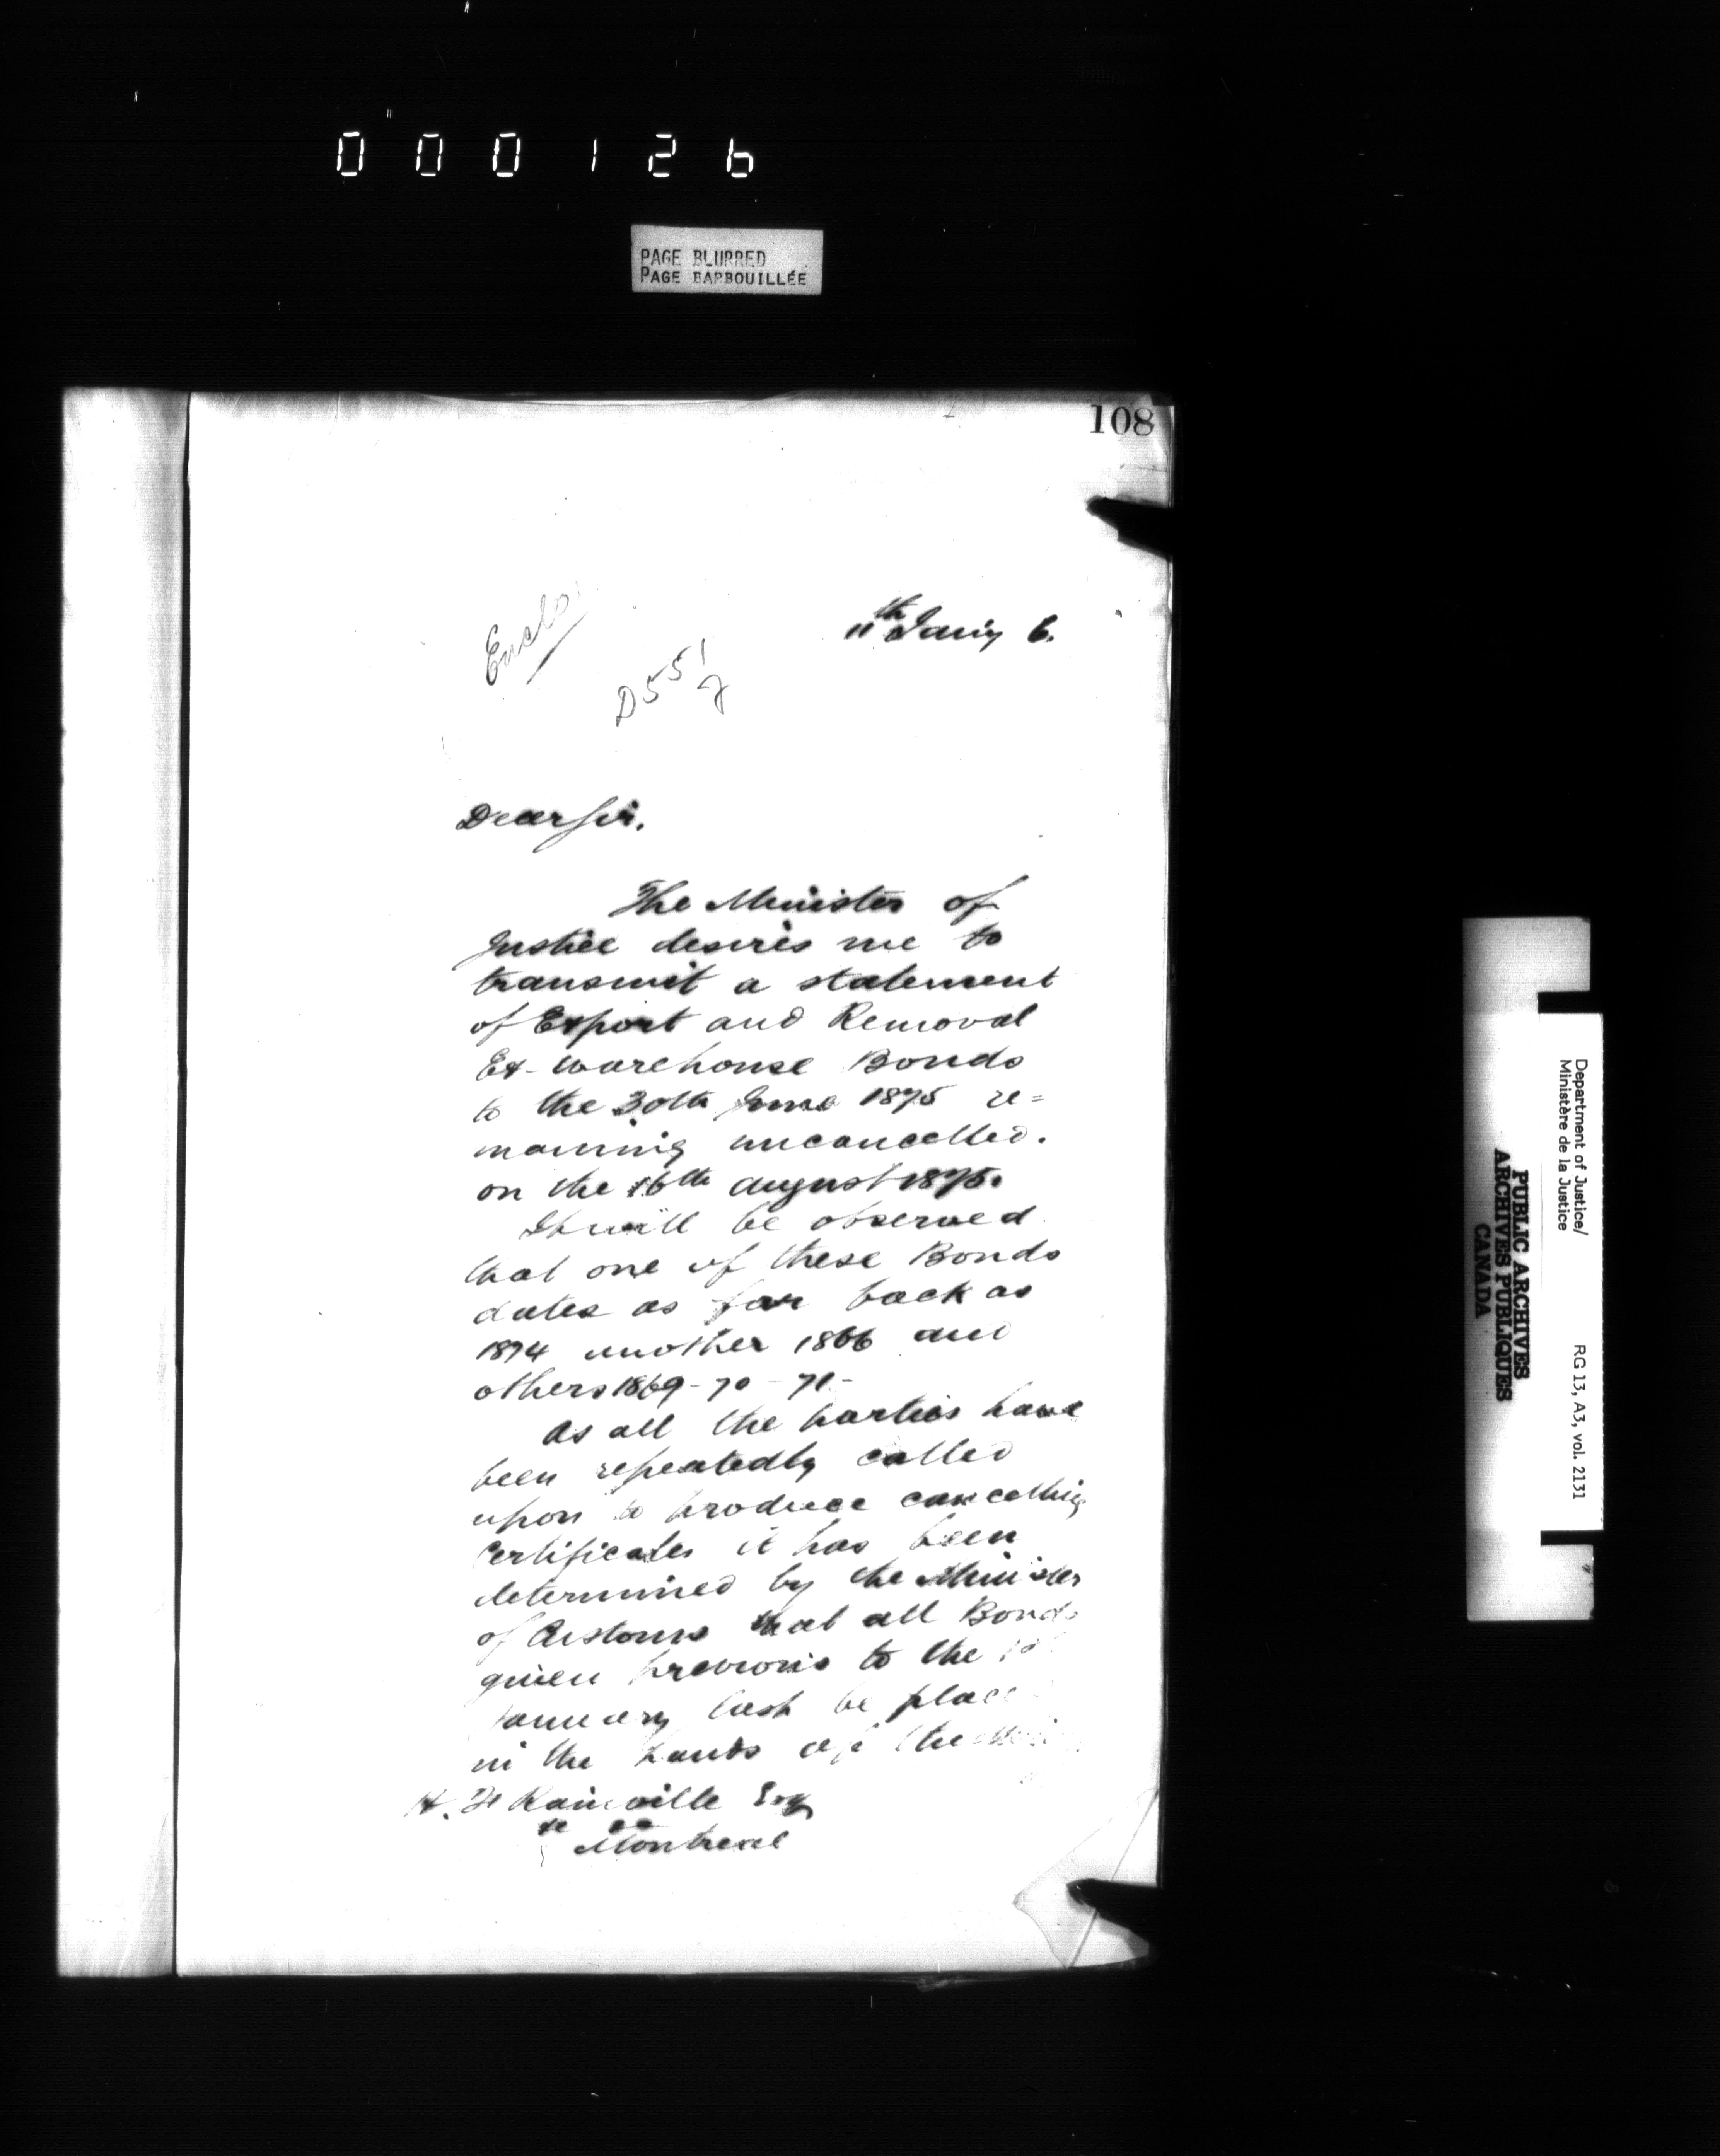 000126
PAGE BLURRED
PAGE BARBOUILLÉE
108
Enclo
11th Jany 6.
D 551/2
Dear Sir.
The Minister of
Justice desires me to
transmit a statement
of Export and Removal
Ex-warehouse Bonds
to the 30th June 1875 re=
maining uncancelled.
on the 16th august 1875.
It will be observed
that one of these Bonds
dates as far back as
1874 another 1866 and
others 1869-70-71-
As all the parties have
been repeatedly called
upon to produce cancelling
Certificates it has been
determined by the Minister
of Customs that all Bonds
given previous to the 1st
January last be place
in the hands of the
H. F. Rainville Esq
Montreal
Department of Justice/
Ministère de la Justice
RG 13, A3, vol. 2131
PUBLIC ARCHIVES
ARCHIVES PUBLIQUES
CANADA